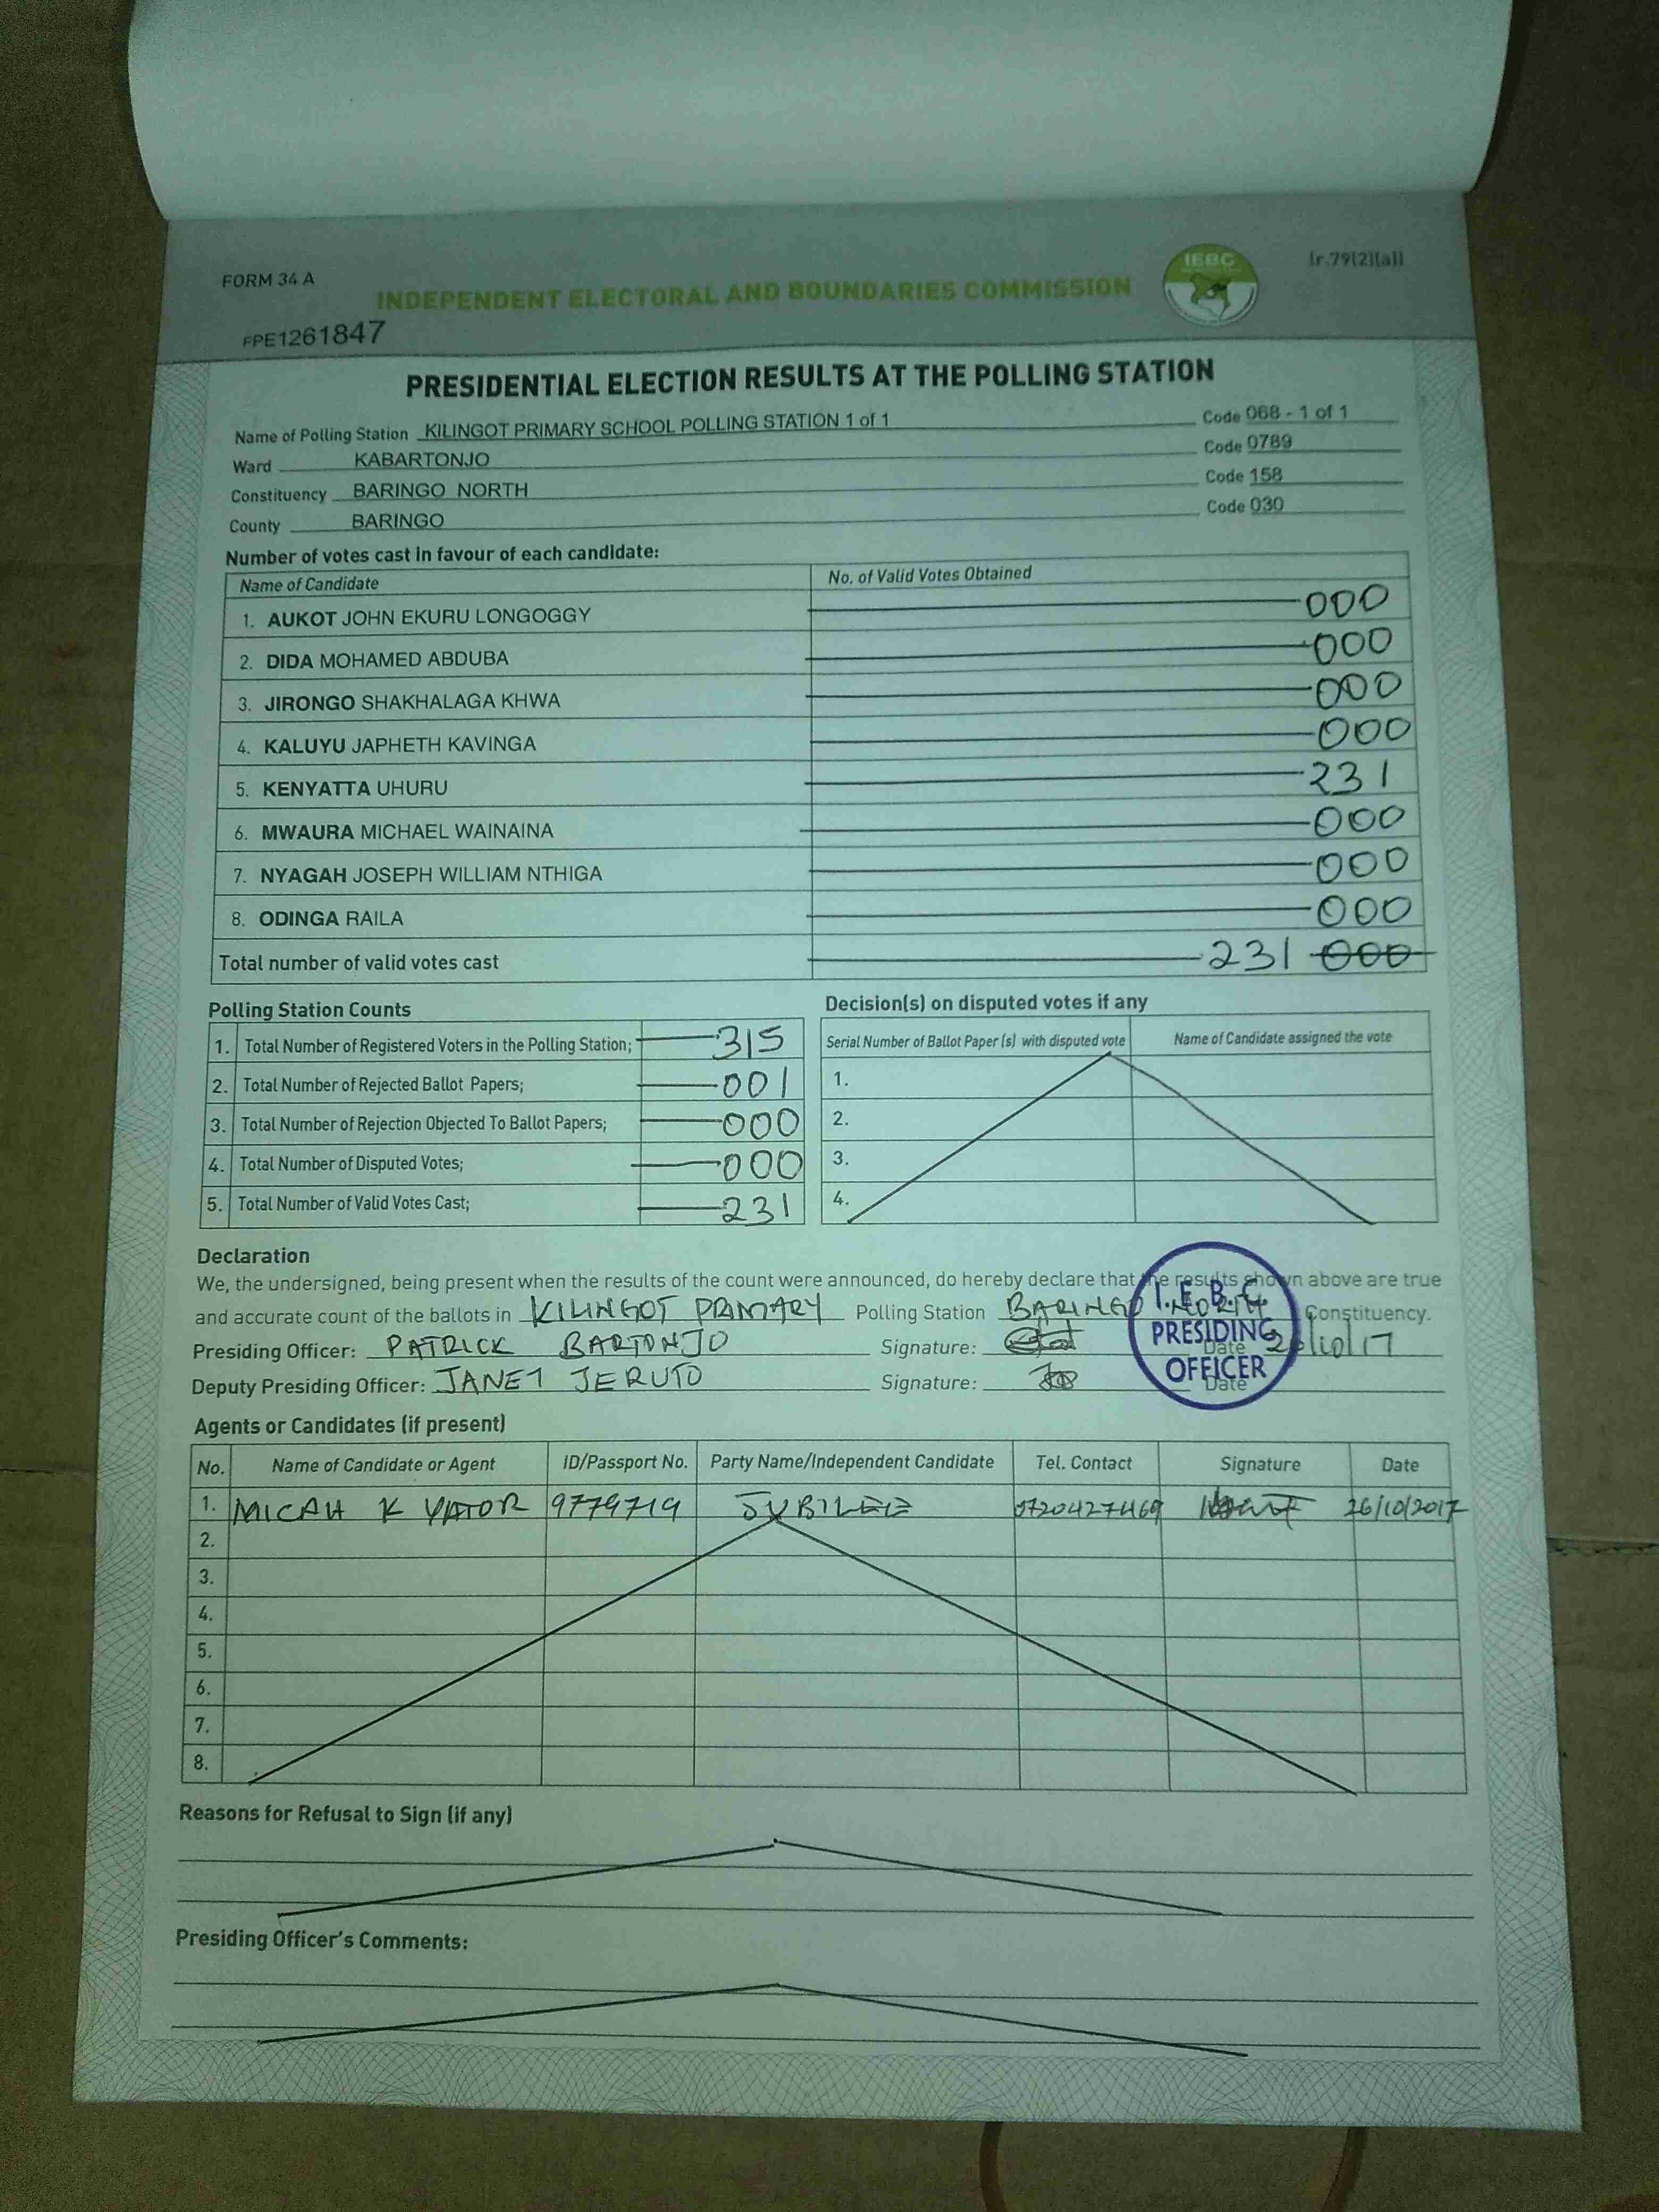 FORM 34 A
INDEPENDENT ELECTORAL AND BOUNDARIES COMMISSION
IEBC
(r.79(2)(a))
FPE1261847
PRESIDENTIAL ELECTION RESULTS AT THE POLLING STATION
Name of Polling Station KILINGOT PRIMARY SCHOOL POLLING STATION 1 of 1 Code 068 - 1 of 1
Ward KABARTONJO Code 0789
Constituency BARINGO NORTH Code 158
County BARINGO Code 030
Number of votes cast in favour of each candidate:
Name of Candidate No. of Valid Votes Obtained
1. AUKOT JOHN EKURU LONGOGGY 000
2. DIDA MOHAMED ABDUBA 000
3. JIRONGO SHAKHALAGA KHWA 000
4. KALUYU JAPHETH KAVINGA 000
5. KENYATTA UHURU 231
6. MWAURA MICHAEL WAINAINA 000
7. NYAGAH JOSEPH WILLIAM NTHIGA 000
8. ODINGA RAILA 000
Total number of valid votes cast 231 000
Polling Station Counts
1. Total Number of Registered Voters in the Polling Station; 315
2. Total Number of Rejected Ballot Papers; 001
3. Total Number of Rejection Objected To Ballot Papers; 000
4. Total Number of Disputed Votes; 000
5. Total Number of Valid Votes Cast; 231
Decision(s) on disputed votes if any
Serial Number of Ballot Paper (s) with disputed vote Name of Candidate assigned the vote
1.
2.
3.
4.
Declaration
We, the undersigned, being present when the results of the count were announced, do hereby declare that the results shown above are true
and accurate count of the ballots in KILINGOT PRIMARY Polling Station BARINGO NORTH Constituency.
Presiding Officer: PATRICK BARTONJO Signature: Date 26/10/17
Deputy Presiding Officer: JANET JERUTO Signature: Date
I.E.B.C.
PRESIDING
OFFICER
Agents or Candidates (if present)
No. Name of Candidate or Agent ID/Passport No. Party Name/Independent Candidate Tel. Contact Signature Date
1. MICAH K YATOR 9779719 JUBILEE 0720427469 26/10/2017
2.
3.
4.
5.
6.
7.
8.
Reasons for Refusal to Sign (if any)
Presiding Officer's Comments: